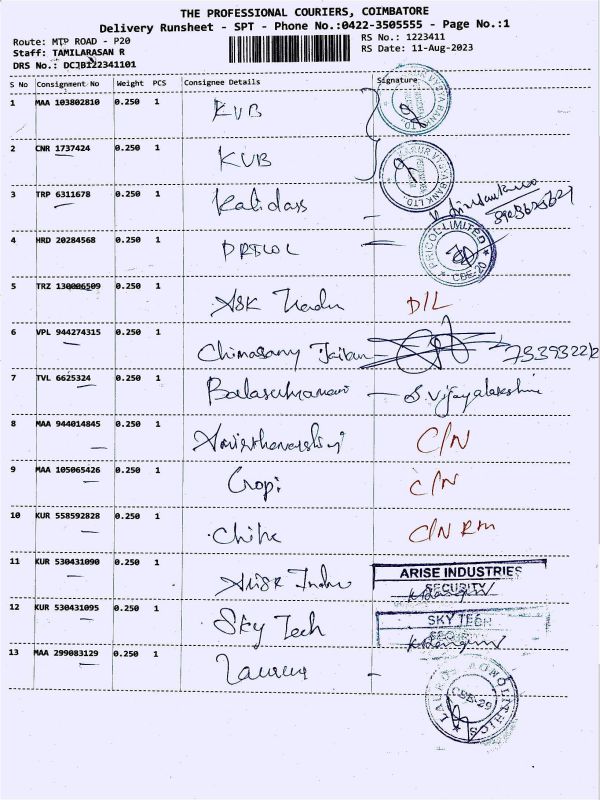 THE PROFESSIONAL COURIERS, COIMBATORE
Delivery Runsheet - SPT - Phone No.:0422-3505555 - Page No.:1
Route: MTP ROAD - P20
RS No.: 1223411
Staff: TAMILARASAN R
RS Date: 11-Aug-2023
DRS No.: DCJB122341101
S No Consignment No Weight PCS Consignee Details Signature
1 MAA 103802810 0.250 1 KVB
2 CNR 1737424 0.250 1 KVB
KARUR VYSYA BANK LTD.
3 TRP 6311678 0.250 1 Kalidass
4 HRD 20284568 0.250 1 PRICOL
PRICOL LIMITED CBE-20
5 TRZ 130006509 0.250 1 ASK Trader D/L
6 VPL 944274315 0.250 1
7 TVL 6625324 0.250 1 S. Vijayalakshmi
8 MAA 944014845 0.250 1 C/N
9 MAA 105065426 0.250 1 Gopi C/N
10 KUR 558592828 0.250 1 C/N
11 KUR 530431090 0.250 1
ARISE INDUSTRIES
SECURITY
12 KUR 530431095 0.250 1 Sky Tech
SKY TECH
13 MAA 299083129 0.250 1
CBE-29